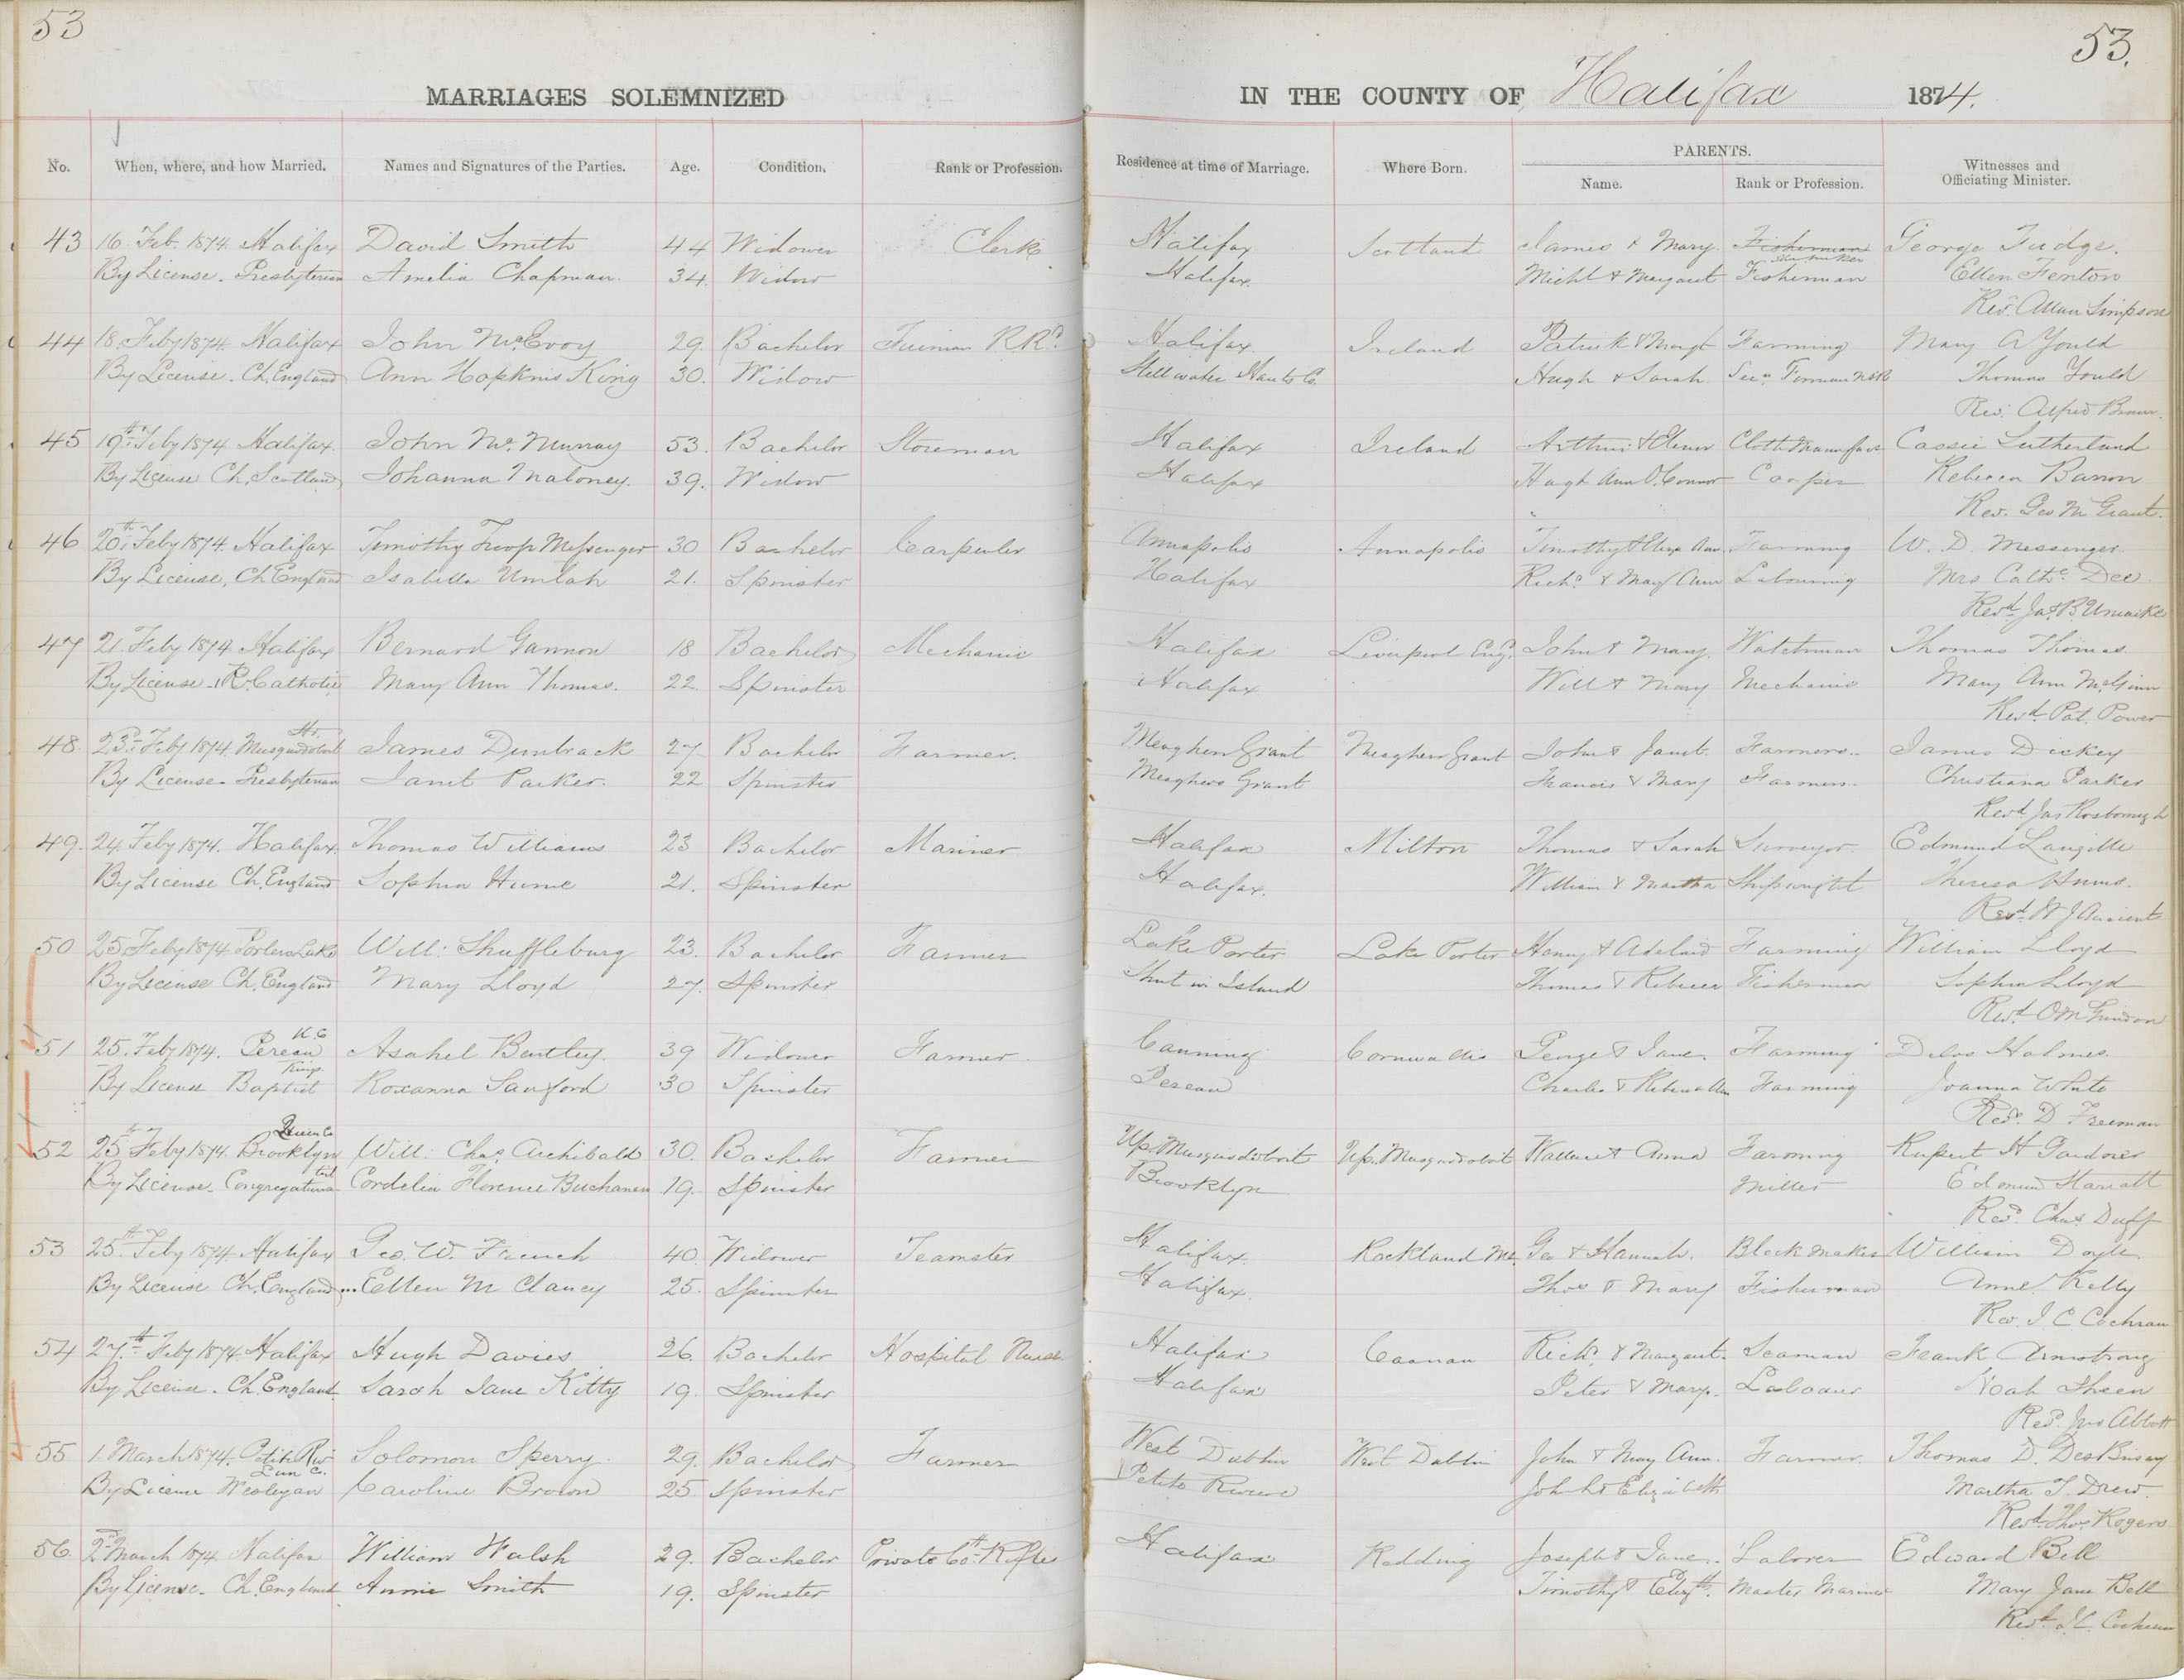 53
53.
MARRIAGES SOLEMNIZED IN THE COUNTY OF Halifax 1874.
No. When, where, and how Married. Names and Signatures of the Parties. Age. Condition. Rank or Profession. Residence at time of Marriage. Where Born. PARENTS. Name. Rank or Profession. Witnesses and Officiating Minister.
43 16. Feb. 1874. Halifax David Smith 44 Widower Clerk Halifax Scotland James & Mary. Fisherman George Fudge.
Shoemaker
By License. Presbyterian Amelia Chapman. 34. Widow Halifax. Michl & Margaret Fisherman Ellen Fenton
Rev. Allan Simpson
44 18. Feby 1874. Halifax John McEvoy 29. Bachelor R. Rd. Halifax. Ireland Patrick & Margt Farming Mary A Yould
By License. Ch. England Ann Hopkins King 30. Widow Stillwater Hants Co. Hugh & Sarah Thomas Yould
Rev. Alfred Brown.
45 19th Feby 1874 Halifax. John Mc. Murray 53. Bachelor Storeman Halifax Ireland Arthur & Elenor Cloth Cassie Sutherland
By License Ch. Scotland Johanna Maloney. 39. Widow Halifax Ann O.Connor Cooper Rebecca
Rev. Geo M Grant.
46 20th Feby 1874. Halifax Timothy Troop Messenger 30 Bachelor Carpenter Annapolis Annapolis Timothy & Farming W. D. Messenger
By License. Ch England Isabella Umlah 21. Spinster Halifax Richd. & Mary Ann Labouring Mrs Cathe. Dee.
Revd. Jas. B. Uniacke
47 21. Feby 1874. Halifax Bernard Gannon 18 Bachelor Mechanic Halifax Liverpool Engd. John & Mary. Watchman Thomas Thomas
By License. R. Catholic Mary Ann Thomas. 22. Spinster Halifax Will & Mary Mechanic Mary Ann McGinn
Revd. Pat. Power
48. 23d. Feby 1874. Musquodoboit James Dunbrack 27 Bachelor Farmer. Meaghers Grant Meaghers Grant John & Janet. Farmers.. James Dickey
By License. Presbyterian Janet Parker. 22 Spinster Meaghers Grant Francis & Mary Farmers.. Christiana Parker
Revd Jas Rosborough
49. 24. Feby 1874. Halifax. Thomas Williams 23 Bachelor Mariner Halifax Milton Thomas & Sarah Surveyor. Edmund Langille
By License Ch. England Sophia Hume 21. Spinster Halifax. William & Martha Shipwright Theresa
Revd. W J Ancient
50 25. Feby 1874 Porters Lake Will: Shuffleburg 23. Bachelor Farmer Lake Porter Lake Porter Henry & Adelaid Farming William Lloyd
By License Ch. England Mary Lloyd 27. Spinster Shut in Island Thomas & Rebecca Fisherman Sophia Lloyd
Revd.
51 25. Feby 1874. Pereau Asahel Bentley. 39 Widower Farmer. Canning Cornwallis George & Jane. Farming Delos Holmes.
Kings
By License Baptist Roxanna Sanford 30 Spinster Pereau Charles & Farming Joanna White
Revd. D Freeman
Queens Co
52 25th Feby 1874. Brooklyn Will: Chas. Archibald 30. Bachelor Farmer Up. Musquodoboit Up. Musquodoboit Wallace & Anna Farming Rupert H Gardner
By License. Cordelia Florence Buchanan 19. Spinster Brooklyn Miller
Revd. Chas. Duff
53 25th. Feby 1874. Halifax Geo. W. French 40. Widower Teamster Halifax. Rockland Me. Geo & Hannah. Block maker William Doyle
By License Ch. England Ellen M Clancy 25. Spinster Halifax. Thos & Mary Fisherman Anne Kelly
Rev. J C Cochran
54 27th. Feby 1874. Halifax Hugh Davies 26. Bachelor Hospital Nurse. Halifax Richd. & Margaret. Seaman Frank Armstrong
By License. Ch. England Sarah Jane Kitty 19. Spinster Halifax Peter & Mary. Labourer Noah Sheen
Revd. Jno Abbott
55 1. March 1874. Petite Riv Solomon Sperry. 29. Bachelor Farmer West Dublin West Dublin John & Mary Ann. Farmer. Thomas D. DesBrisay
Lun Co.
By License Wesleyan Caroline Brown 25. Spinster Petite Riviere John & Elizabeth Martha J. Drew.
Revd. Thos. Rogers
56. 2d March 1874. Halifax William Walsh 29. Bachelor Private 60th. Rifles Halifax Redding Joseph & Jane. Laborer Edward Bell
By License. Ch. England Annie Smith 19. Spinster Timothy & Elizth. Master Mariner Mary Jane Bell
Revd. J.C. Cochran